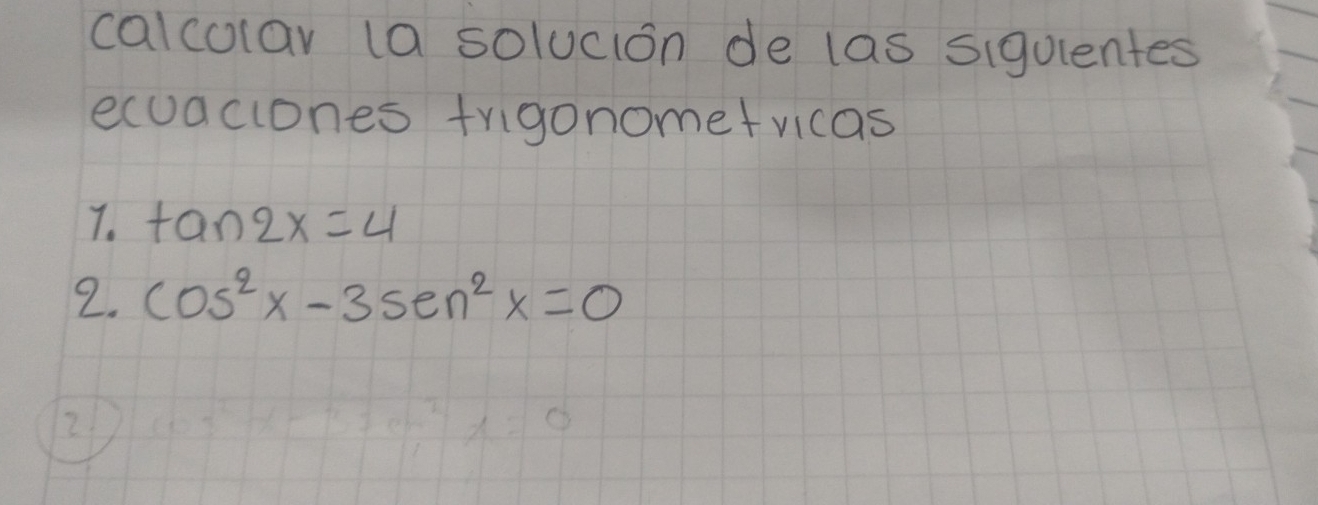 calcular la solución de las siguientes
ecuaciones trigonometricas
1. tan2x=4
2. cos²x-3sen²x=0
2. cos²x-3sen² x=0